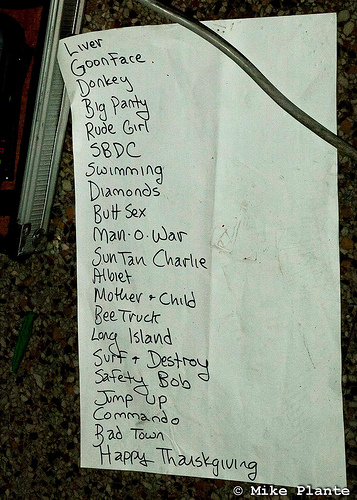 Liver
GoonFace.
Donkey
Big Panty
Rude Girl
SBDC
Swimming
Diamonds
Butt Sex
Man-O-War
Sun Tan Charlie
Albiet
Mother + Child
Bee Truck
Long Island
Surf + Destroy
Safety Bob
Jump Up
Commando
Bad Town
Happy Thanskgiving
© Mike Plante